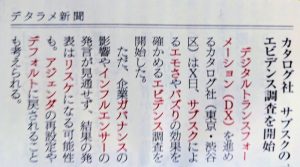 デタラメ新聞
カタログ社　サブスクの
エビデンス調査を開始
デジタルトランスフォー
メーション（DX）を進め
るカタログ社（東京・渋谷
区）はX日、サブスクによ
るエモさやバズりの効果を
確かめるエビデンス調査を
開始した。
ただ、企業ガバナンスの
影響やインフルエンサーの
発言が見通せず、結果の発
表はリスケになる可能性
も。アジェンダの再設定や
デフォルトに戻されること
も考えられる。